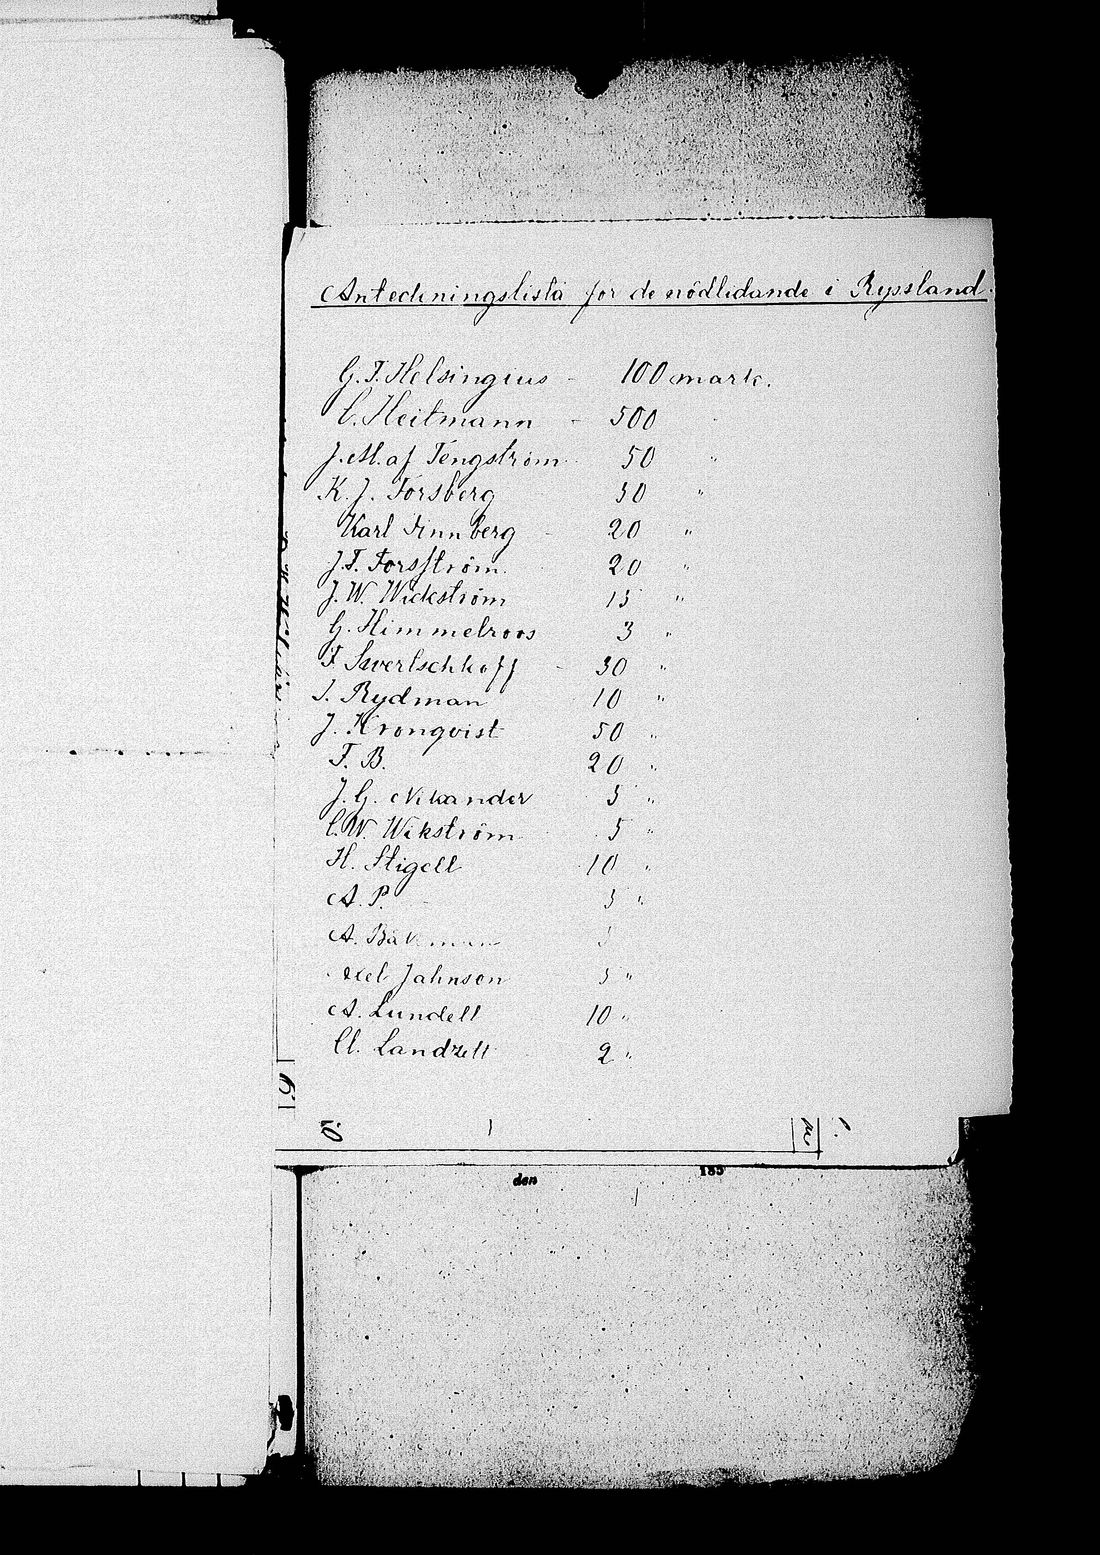 Anteckningslista för de nödlidande i Ryssland.
G. F. Helsingius - 100 mark.
C. Heitmann - 500
J. M. af Tengström 50 "
K. J. Forsberg 50 "
Karl Ennberg - 20 "
J. F. Forsström 20 "
J. W. Wickström 15 "
G. Himmelroos 3 "
F. Swertschkoff - 30 "
I. Rydman 10 "
J. Kronqvist 50 "
F. B. 20 "
J. G. Nikander 5 "
C. W. Wikström 5 "
H. Stigell 10 "
A. P. 5 "
A. Bäckman 5
Axel Jahnson 5 "
A. Lundell 10 "
Cl. Landzett 2 "
den 185